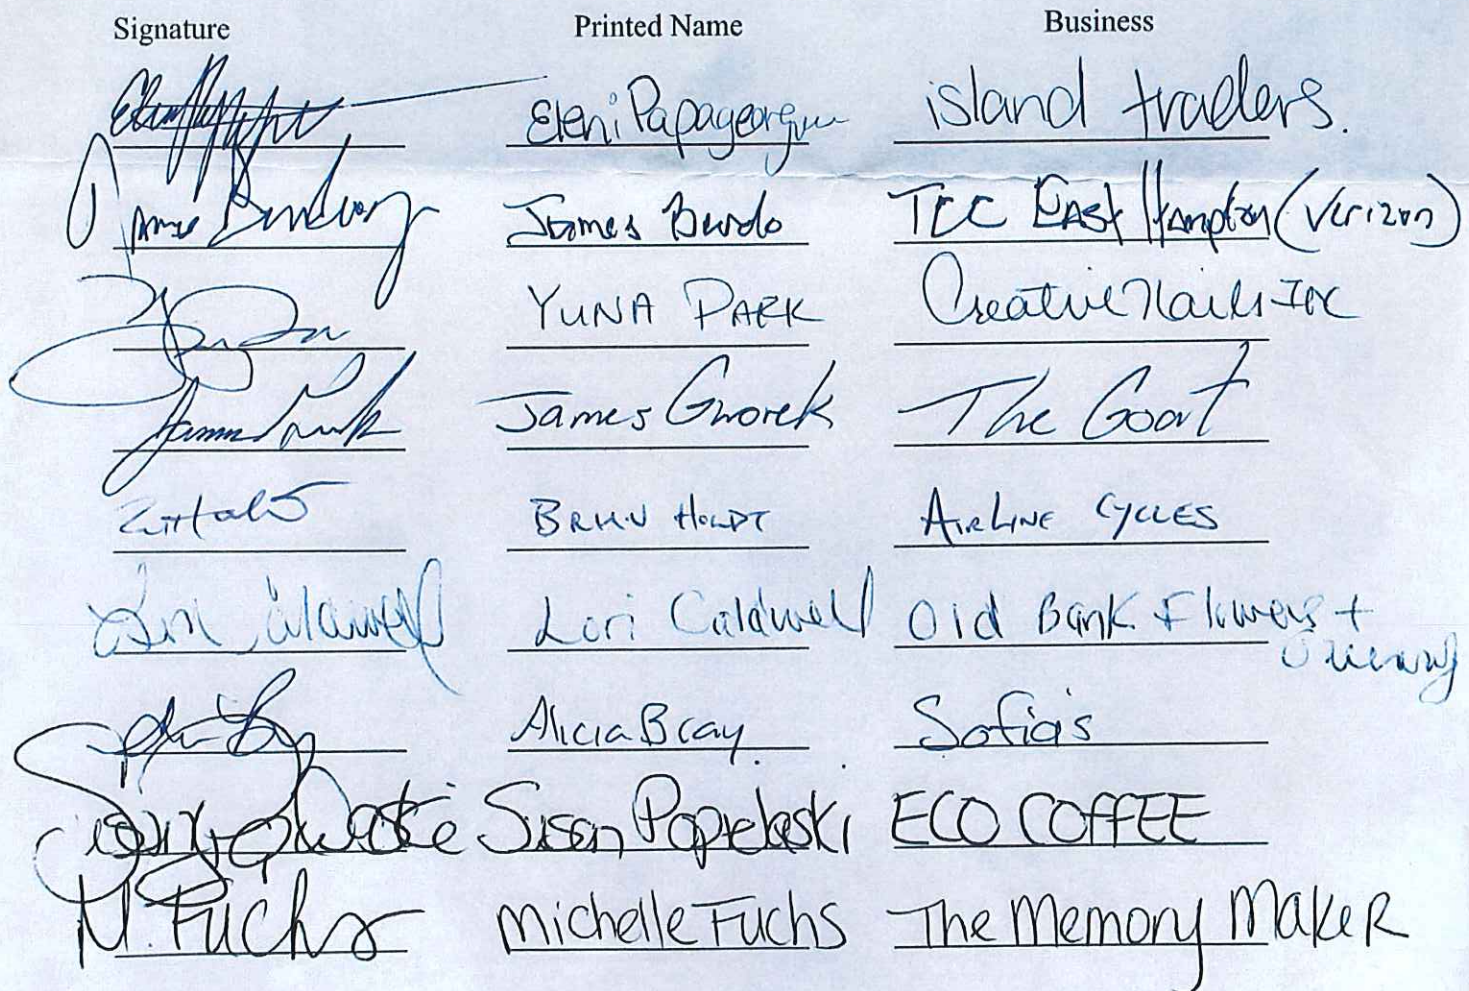 Signature Printed Name Business
Eleni Papageorgiou island traders.
James Burdo TCC East Hampton (Verizon)
YUNA PARK Creative Nails Inc
James Gworek The Goat
BRIAN HOLDT AIRLINE CYCLES
Lori Caldwell Lori Caldwell Old Bank Flowers +
Alicia Bray. Sofia's
Susan Popielaski ECO COFFEE
M. Fuchs Michelle Fuchs The Memory Maker